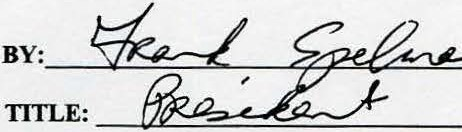 BY: Frank Spelma
TITLE: President